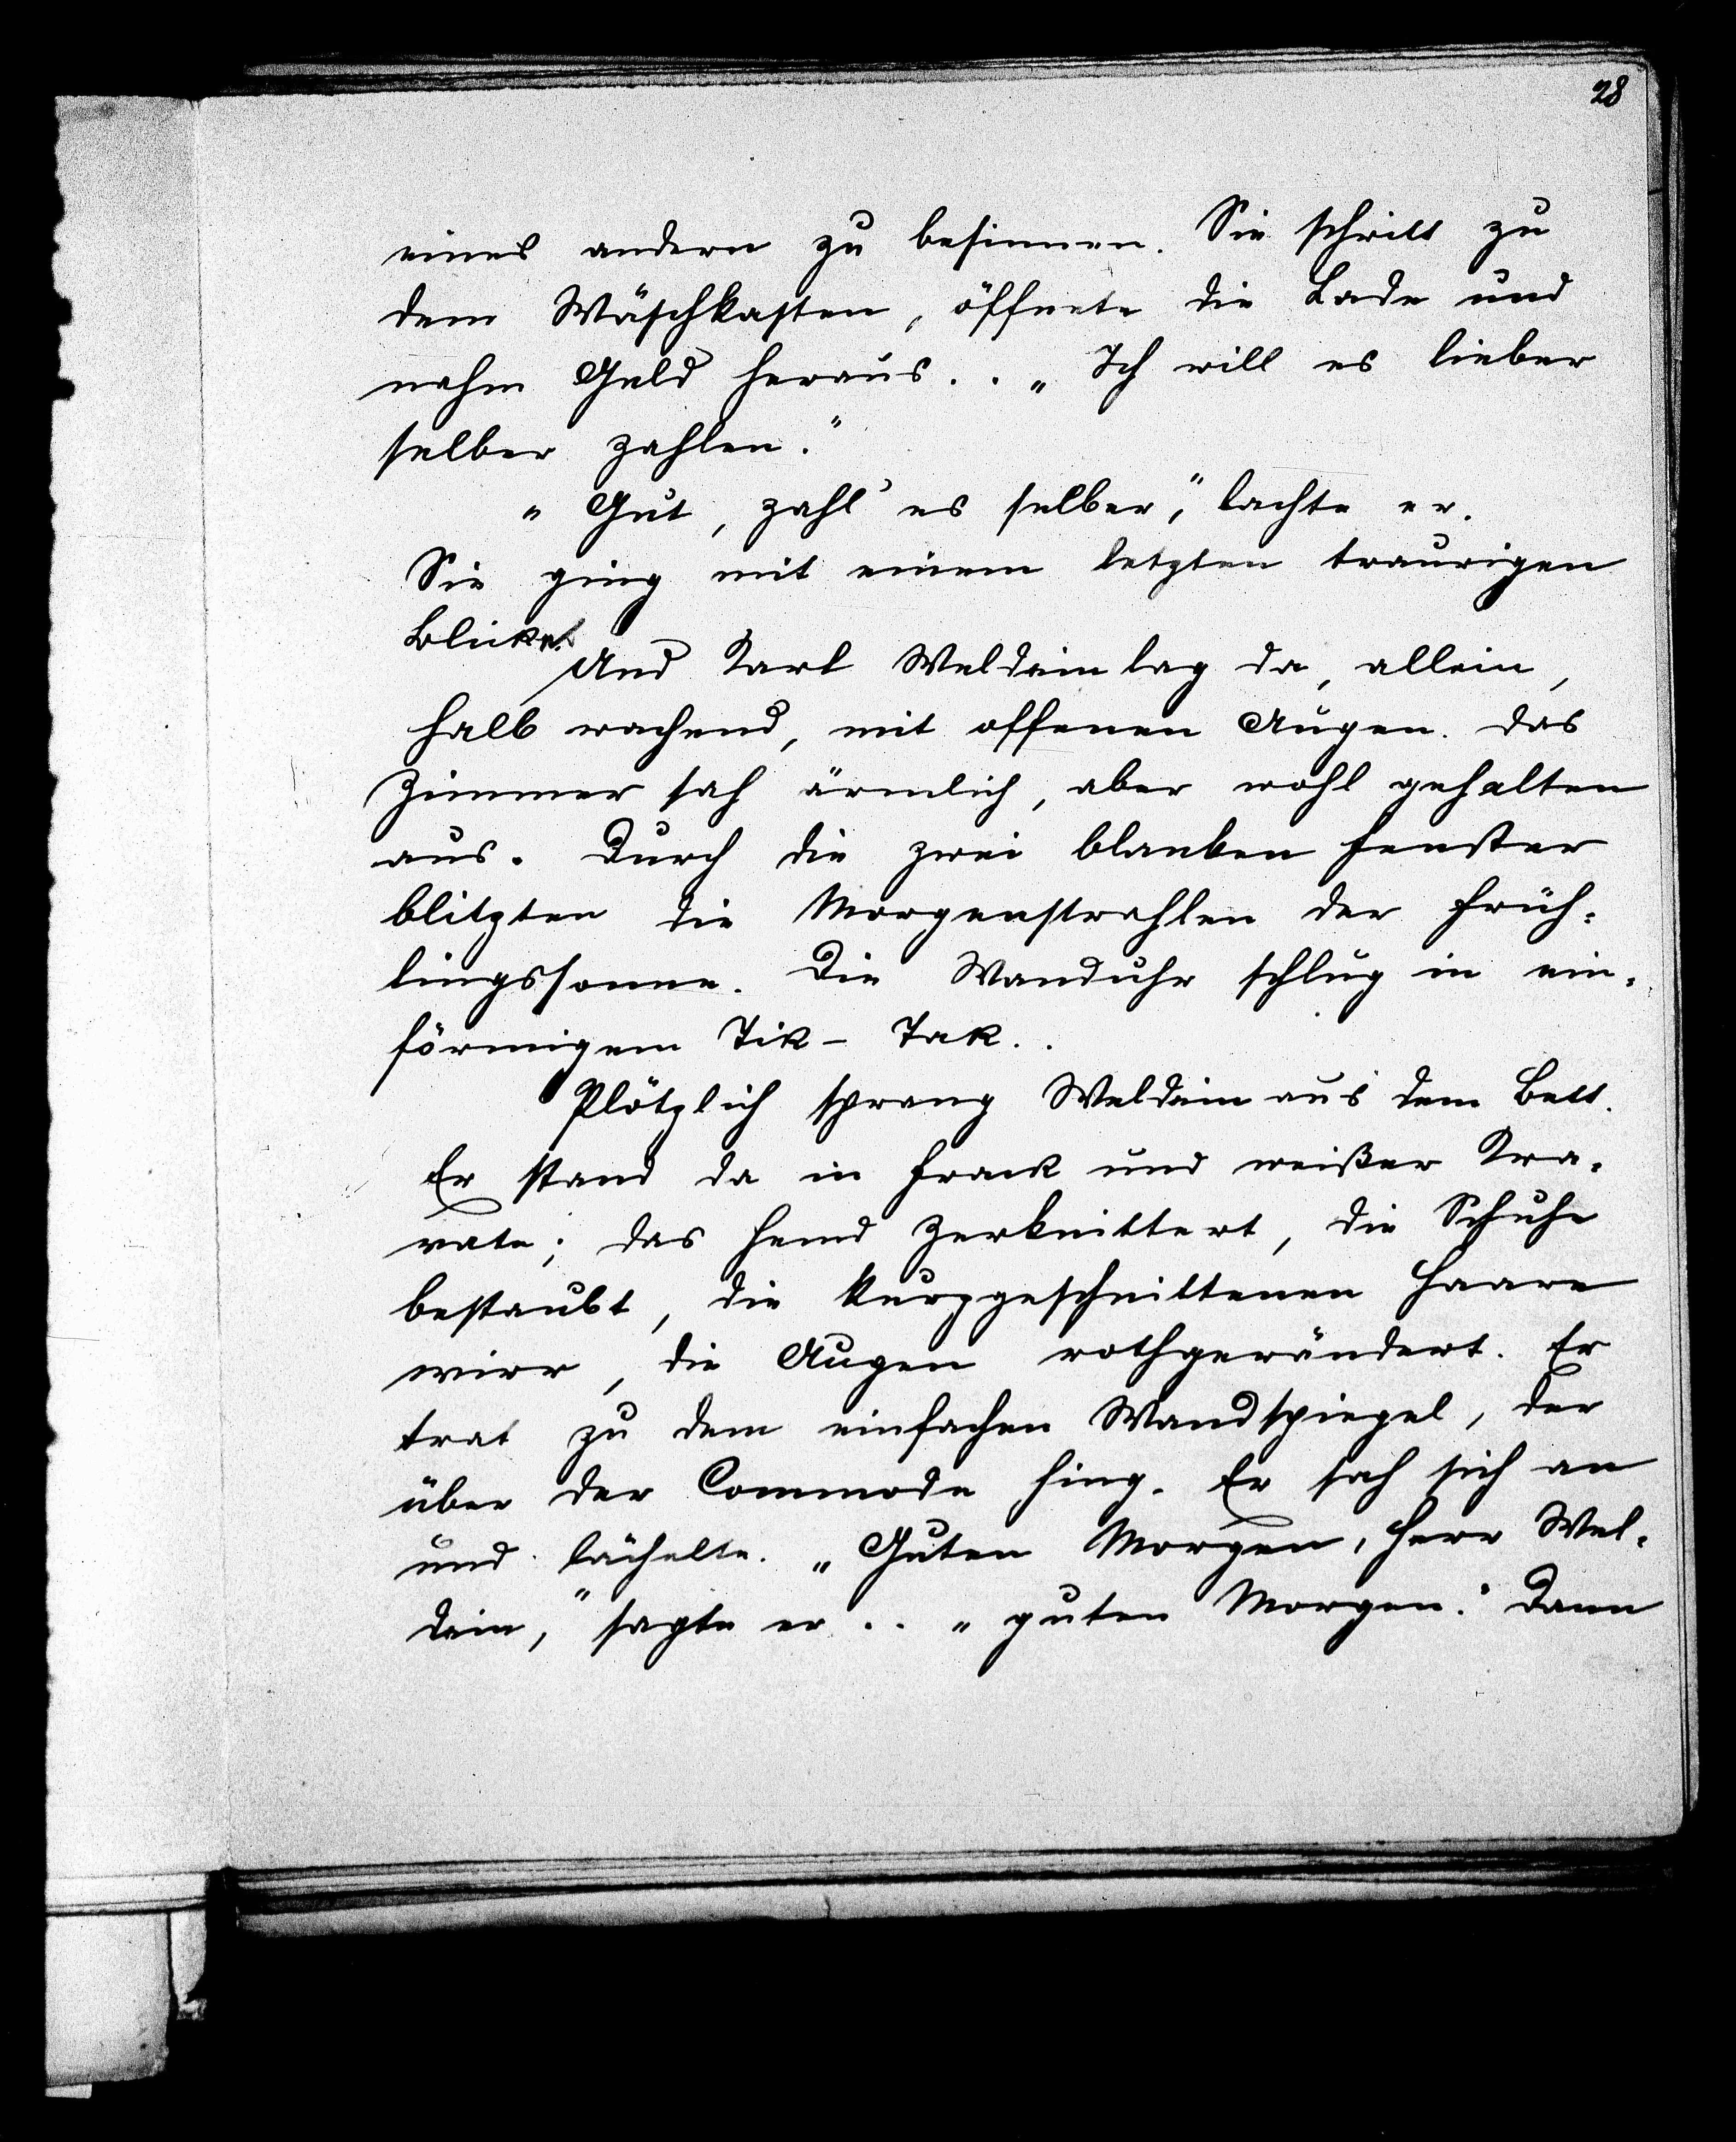 28
eines andern zu besinnen. Sie schritt zu
dem Wäschkasten, öffnete die Lade und
nahm Geld heraus.. „Ich will es lieber
selber zahlen.“
„Gut, zahl' es selber,“ lachte er.
Sie ging mit einem letzten traurigen
Blick.
Und Karl Weldein lag da, allein,
halb wachend, mit offenen Augen. Das
Zimmer sah ärmlich, aber wohl gehalten
aus. Durch die zwei blanken Fenster
blitzten die Morgenstrahlen der Früh-
lingssonne. Die Wanduhr schlug in ein-
förmigem Tik-Tak..
Plötzlich sprang Weldein aus dem Bett.
Er stand da in Frack und weißer Kra-
vate; das Hemd zerknittert, die Schuhe
bestaubt, die kurzgeschnittenen Haare
wirr, die Augen rothgerändert. Er
trat zu dem einfachen Wandspiegel, der
über der Commode hing. Er sah sich an
und lächelte. „Guten Morgen, Herr Wel-
dein,“ sagte er.. „guten Morgen.“ Dann